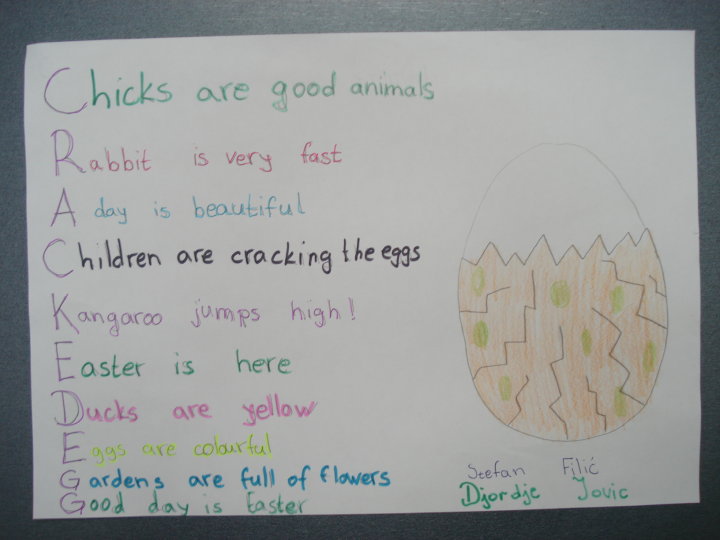 Chicks are good animals
Rabbit is very fast
A day is beautiful
Children are cracking the eggs
Kangaroo jumps high!
Easter is here
Ducks are yellow
Eggs are colourful
Gardens are full of flowers
Good day is Easter
Stefan Filić
Djordje Jovic